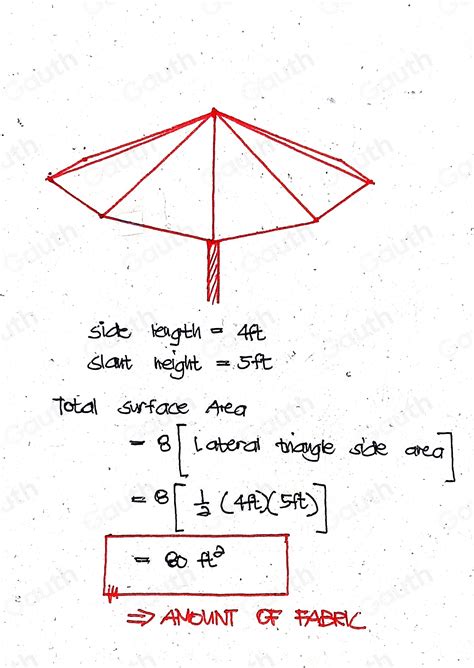 side length = 4ft
slant height = 5ft
Total surface Area
= 8 [Lateral triangle side area]
= 8 [1/2 (4ft)(5ft)]
= 80 ft²
⇒ AMOUNT OF FABRIC
Gauth